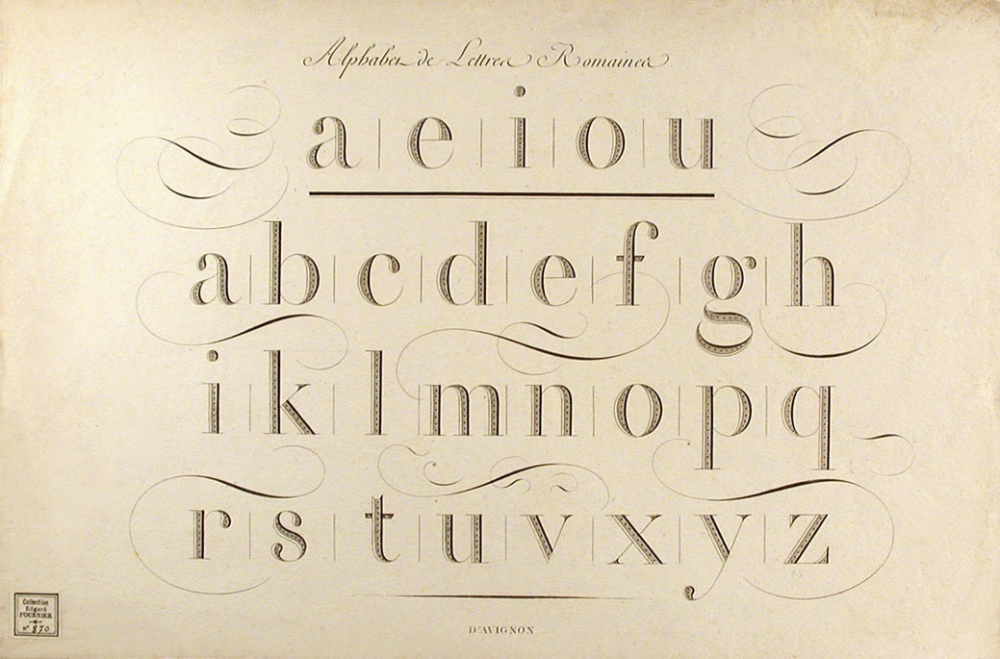 Alphabet de Lettres Romaines
a e i o u
a b c d e f g h
i k l m n o p q
r s t u v x y z
D'AVIGNON
Collection
Edgard
FOURNIER
n° 870